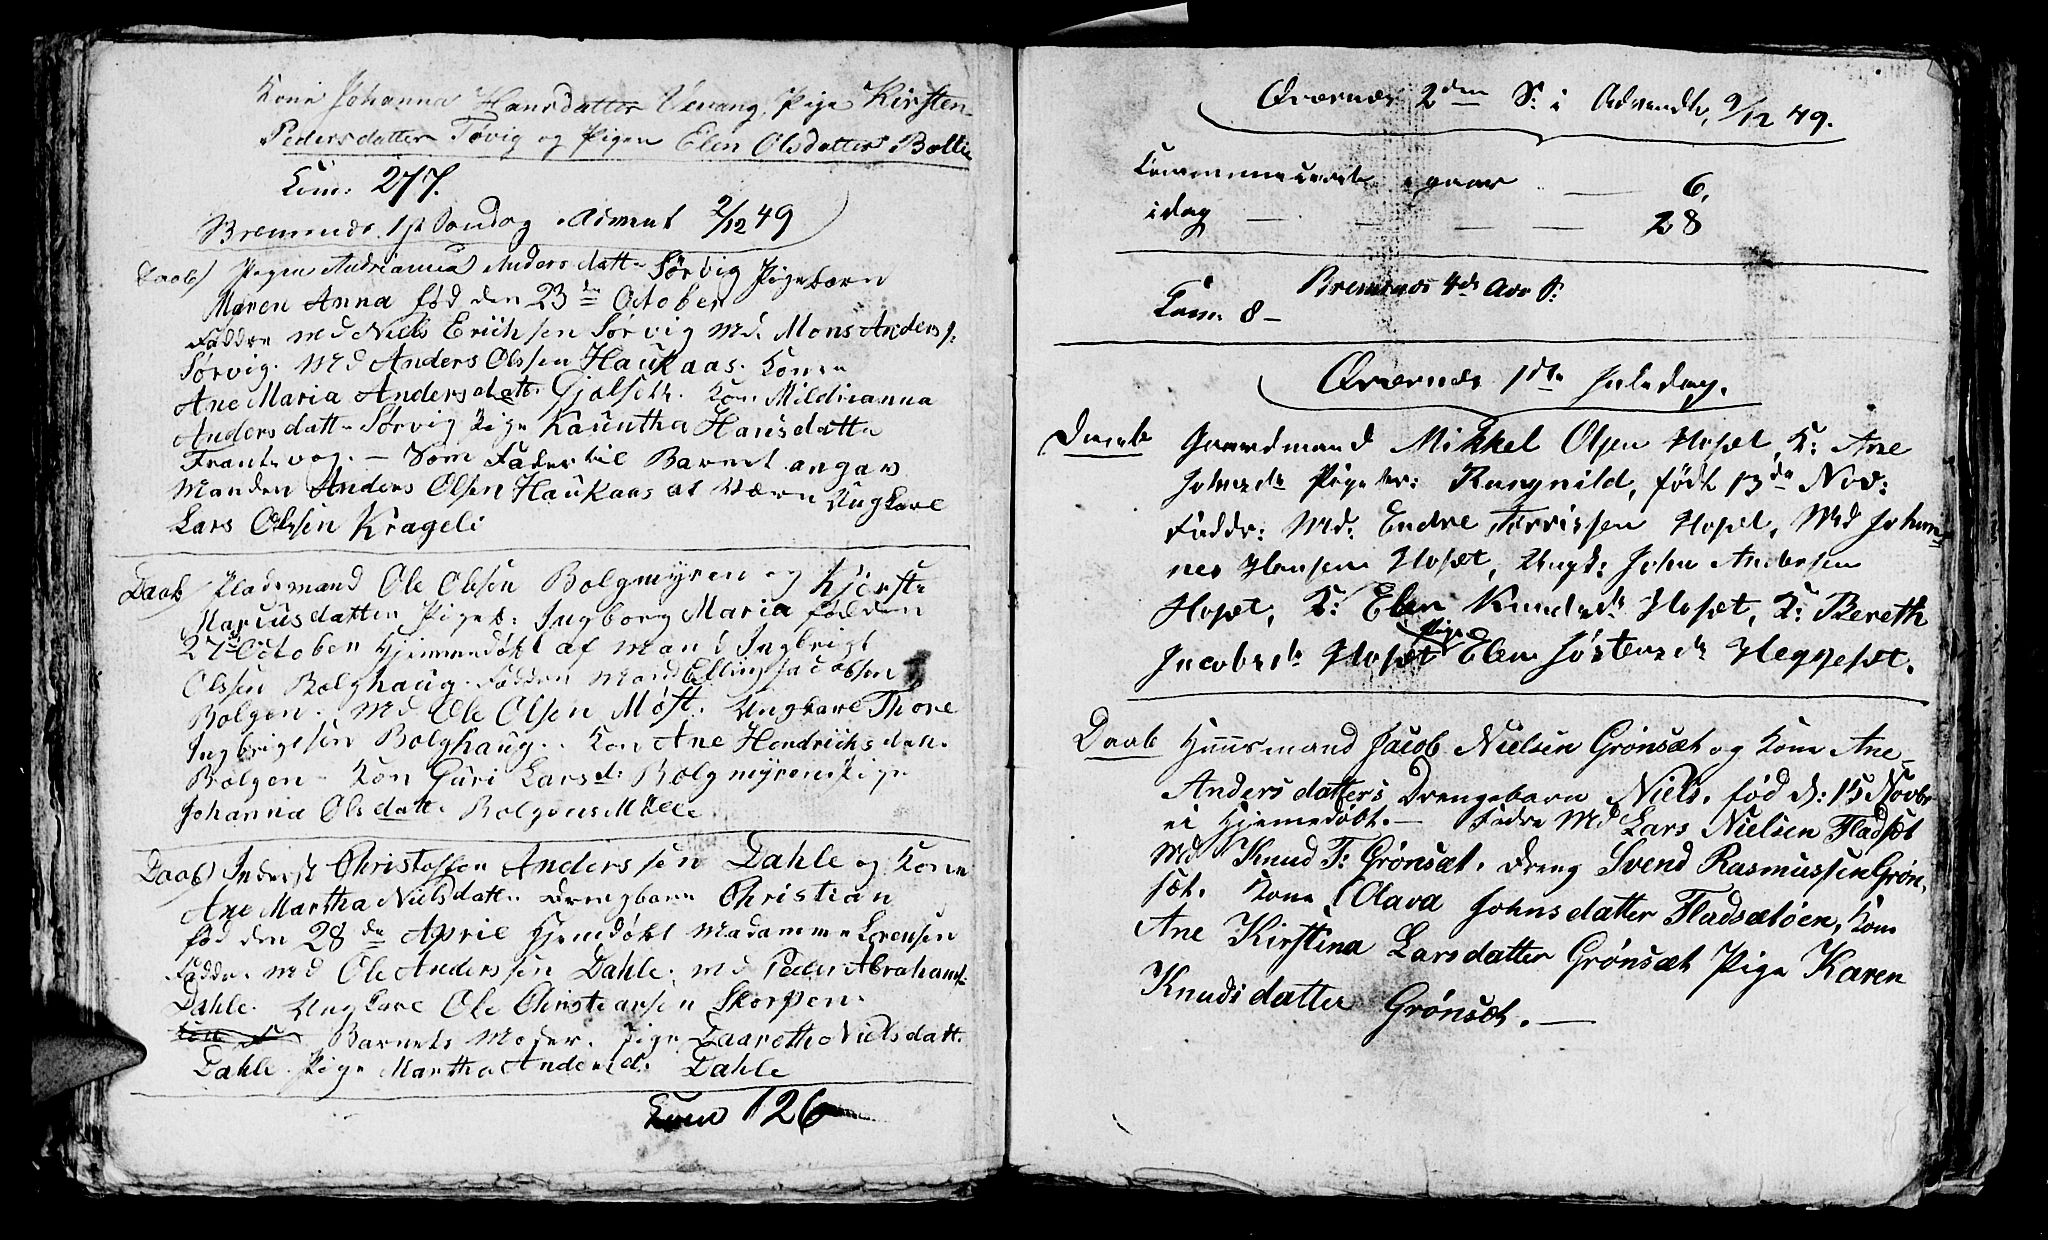 Kone Johanna Hansdatter Vevang. Pige Kirsten
Pedersdatter Tøvig og Pigen Elen Olsdatter Bolli
Com: 277.
Bremsnæs 1st Søndag Advent 2/12 49
Daab/ Pigen Andrianna Andersdatt. Sørvig Pigebarn
Maren Anna fød den 23de October
Fadder Md Niels Erichsen Sørvig Md. Mons Anders.
Sørvig. Md Anders Olssen Haukaas. Konen
Ane Maria Andersdatt. Gjølseth. Kon Mildrianna
Andersdatt. Sørvig Pige Hansdatte
Frantsvog. — Som Fader til Barnet angav
Manden Anders Olsen Haukaas at være Ungkarl
Lars Olssen Krageli
Daab/ Pladsmand Ole Olssen Bolgmyren og Kjerste
Marcusdatter Pigeb: Ingborg Maria fød den
27de October Hjemmedøbt af Mand Ingbrigt
Olssen Bolghaug. Fadder Mand Elling Jacobsen
Bolgen. Md Ole Olsen Møst. Ungkarl Thore
Ingbrigtsen Bolghaug. Kon Ane Hendrichsdatt.
Bolgen. Kon Guri Larsd: Bolgmyren Pige
Johanna Olsdatt.
Daab/ Inderst Christoffen Anderssen Dahle og Kone
Ane Martha Nielsdatt. Drengbarn Christian
fød den 28de April Hjemdøbt Madamme Lorensen
Fadder. Md Ole Anderssen Dahle. Md Peder Abrahams.
Dahle. Ungkarl Ole Christiansen Skorpen.
Barnets Moder. Pige Daarethe Nielsdatt.
Dahle. Pige Martha Andersd: Dahle
Com 126
Qvernæs 2den S: i Advendt, 9/12 49.
Communicerede igaar — 6,
idag — — — 28
Bremsnæs 4de Adv S:
Com: 8 —
Qvernæs 1ste Juledag.
Daab Gaardmand Mikkel Olsen Hoset, K: Ane
Johnsdr Pigebr: Rangnild, født 13de Nov:
Faddr: Md: Endre Torrissen Hoset, Md Johan-
nes Hansen Hoset, Ungk: John Andersen
Hoset, K: Elen Knudsdr Hoset, K: Bereth
Jacobsdr Hoset Pige Elen Jostensdr Heggeset.
Daab Huusmand Jacob Nielsen Grønsæt og Kone Ane
Andersdatters Drengebarn Niels, fød d: 15 Novbr
ei Hjemedøbt. — Fadre Md Lars Nielsen Fladsæt
Md Knud T: Grønsæt. Dreng Svend Rasmussen Grøn-
sæt. Kone Olava Johnsdatter Fladsætøen, Kone
Ane Kirstina Larsdatter Grønsæt Pige Karen
Knudsdatter Grønsæt. —